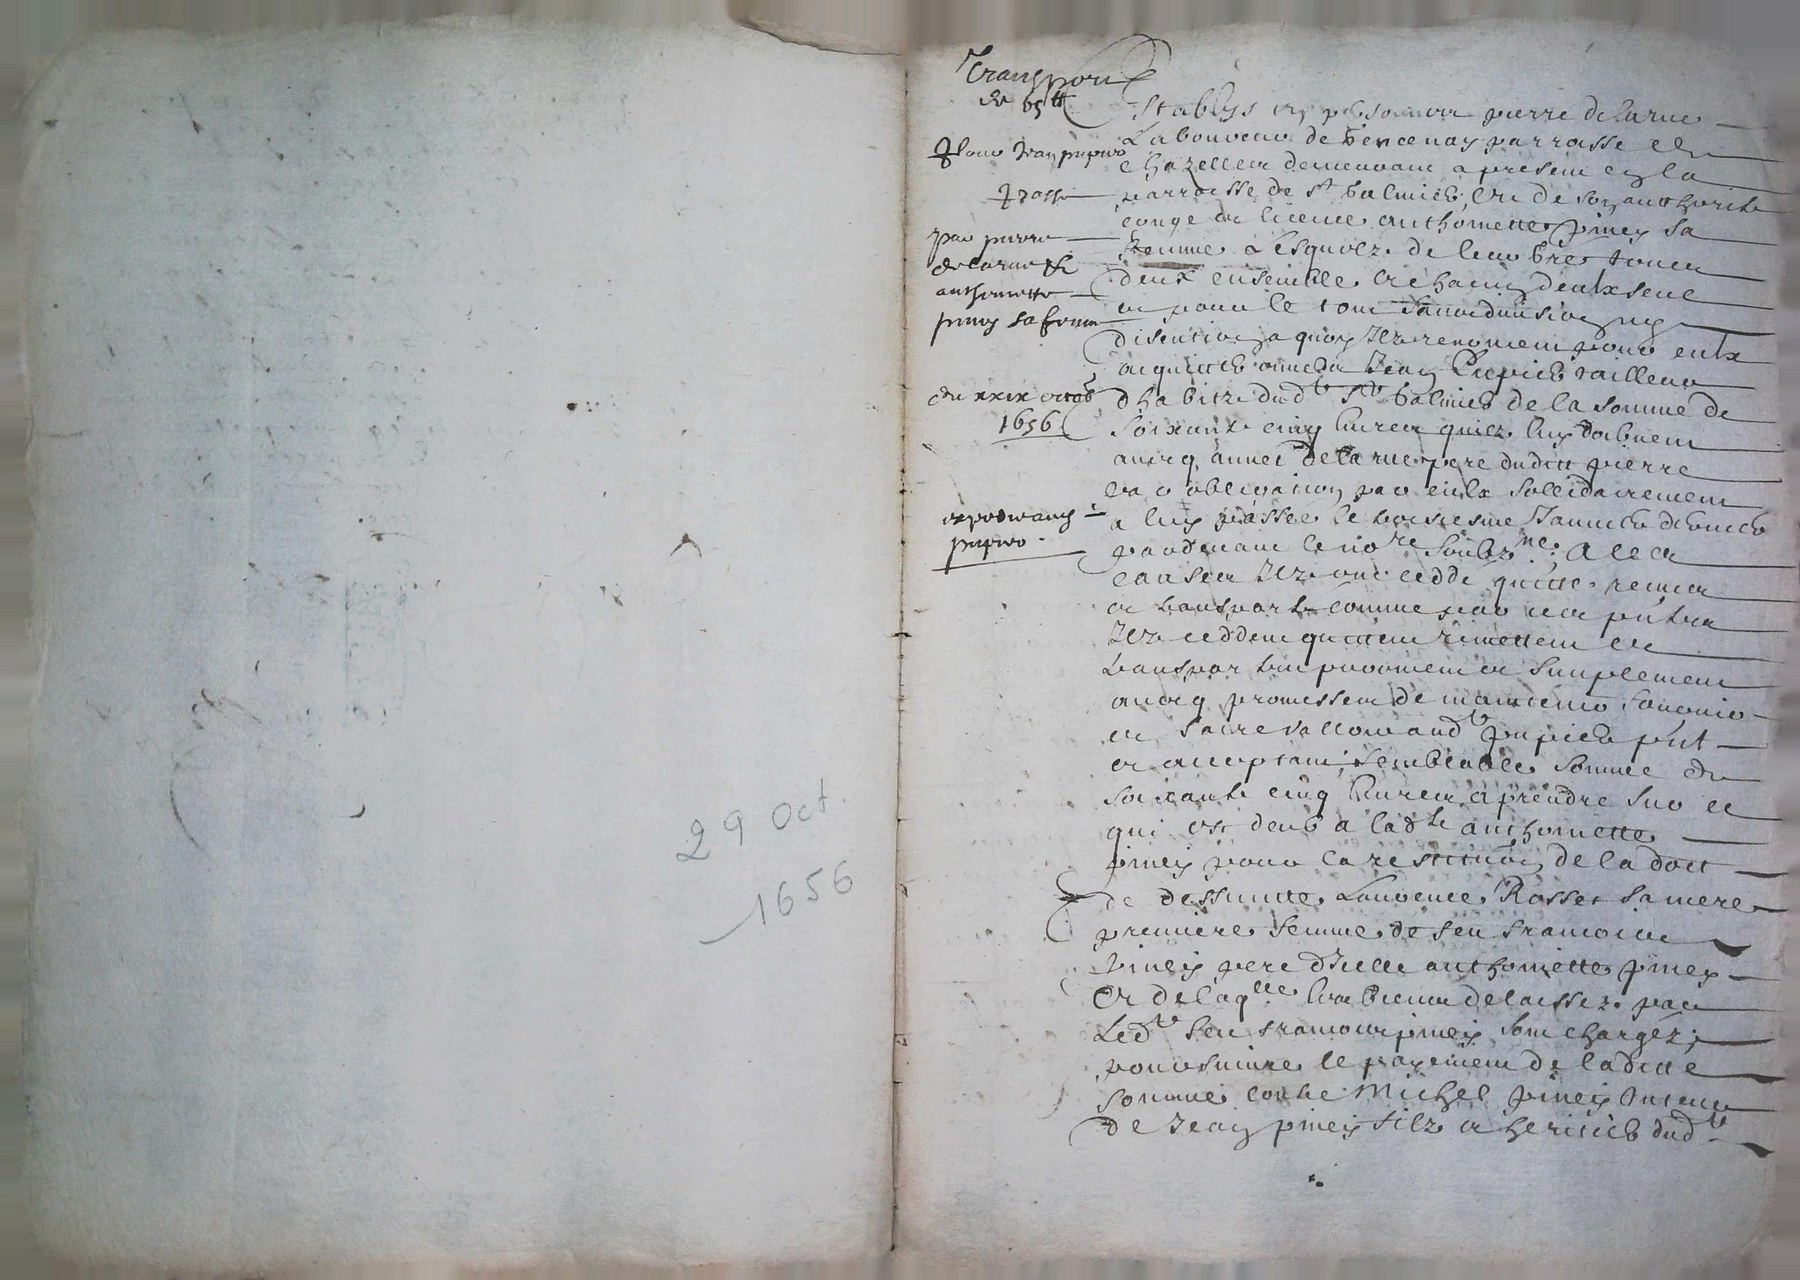 29 Oct.
1656
Transport
de 65 lt
Pour Jean pupier
passé
par pierre
delarue et
anthoinette
piney sa femme
du xxix octob
1656
expedié aud
pupier
Establys en personnes pierre delarue
Laboureur de parroisse de
Chazelles demeurant a present en la
parroisse de st galmier, et de son authorite
conge et licence anthoinette piney sa
femme Lesquelz de leur gre tous
deux ensemble et chacung deulx seul
et pour le tout sans division ny
discution a quoy Ilz renoncent pour eulx
acquitter envers Jean Pupier tailleur
dhabitz dudt st galmier de la somme de
soixante cinq livres quilz luy doibvent
avecq annet delarue pere dudict pierre
par obligation par eulx sollidairement
a luy passée le Janvier dernier
pardevant le nore soubz né. A ces
causes Ilz ont cedde quitte remis
et transporte comme par ces pntes
Ilz ceddent quittent remettent et
transportent purement et simplement
avecq promesses de maintenir garantir
et faire valloir audt pupier pnt
et acceptant, semblable somme de
soixante cinq livres a prendre sur ce
qui est deub a ladte anthoinette
piney pour la restitution de la dott
de deffuncte Laurence Rosset sa mere
premiere femme de feu francois
piney pere dicelle anthoinette piney
Et de laqlle les biens delaissez par
Ledt feu francois piney sont chargez,
poursuivre le payement de ladicte
somme contre Michel piney tuteur
de Jean piney filz et heritier dudt